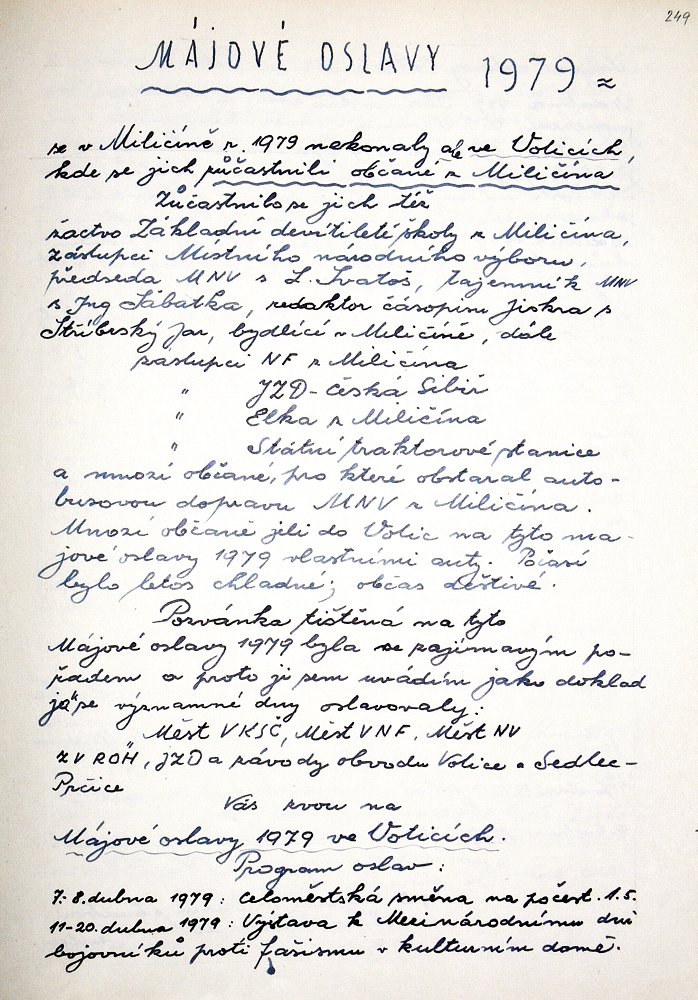 249
MÁJOVÉ OSLAVY 1979
se v Miličíně r. 1979 nekonaly ale ve Voticích,
kde se jich zúčastnili občané z Miličína
Zúčastnilo se jich též
žactvo Základní devítileté školy z Miličína,
zástupci Místního národního výboru,
předseda MNV s L. Svatoš, tajemník MNV
s Ing Sábatka, redaktor časopisu Jiskra s
Stříbrský Jar, bydlící v Miličíně, dále
zástupci NF z Miličína
" JZD - Česká Sibiř
" Elka z Miličína
" Státní traktorové stanice
a mnozí občané, pro které obstaral auto-
busovou dopravu MNV z Miličína.
Mnozí občané jeli do Votic na tyto má-
jové oslavy 1979 vlastními auty. Počasí
bylo letos chladné; občas deštivé.
Pozvánka tištěná na tyto
Májové oslavy 1979 byla se zajímavým po-
řadem a proto ji sem uvádím jako doklad
jak se významné dny oslavovaly:
Měst VKSČ, Měst VNF, Měst NV
ZV ROH, JZD a závody obvodu Votice a Sedlec-
Prčice
Vás zvou na
Májové oslavy 1979 ve Voticích.
Program oslav:
7.-8. dubna 1979: Celoměstská směna na počest 1.5.
11-20. dubna 1979: Výstava k Mezinárodnímu dni
bojovníků proti fašismu v kulturním domě.